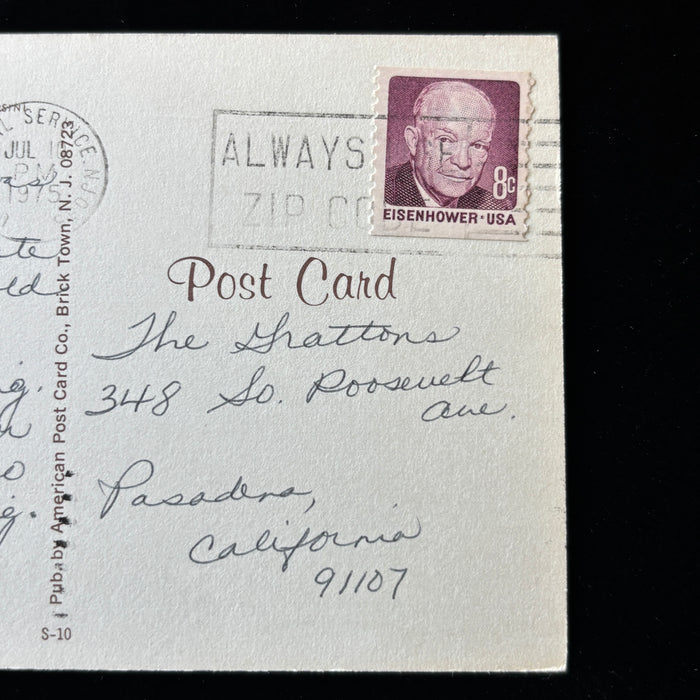 L SERVICE NJ
JUL 1
PM
1975
ALWAYS
ZIP CODE
8c
EISENHOWER·USA
Post Card
The Grattons
348 So. Roosevelt
ave.
Pasadena,
California
91107
Pub. by American Post Card Co., Brick Town, N. J. 08723
S-10